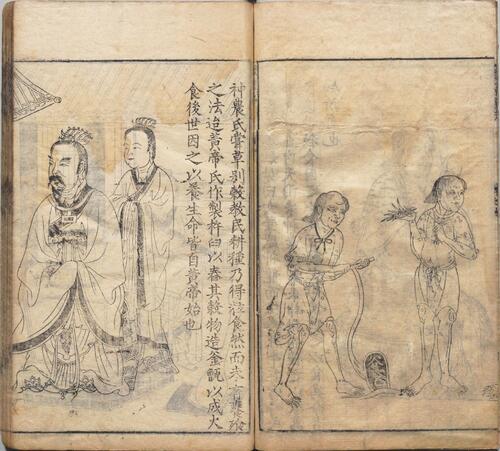 神農氏嘗草別穀教民耕種乃得粒食然而未有饔飱
之法迨黃帝氏作製杵臼以舂其穀物造釜甑以成火
食後世因之以養生命皆自黃帝始也